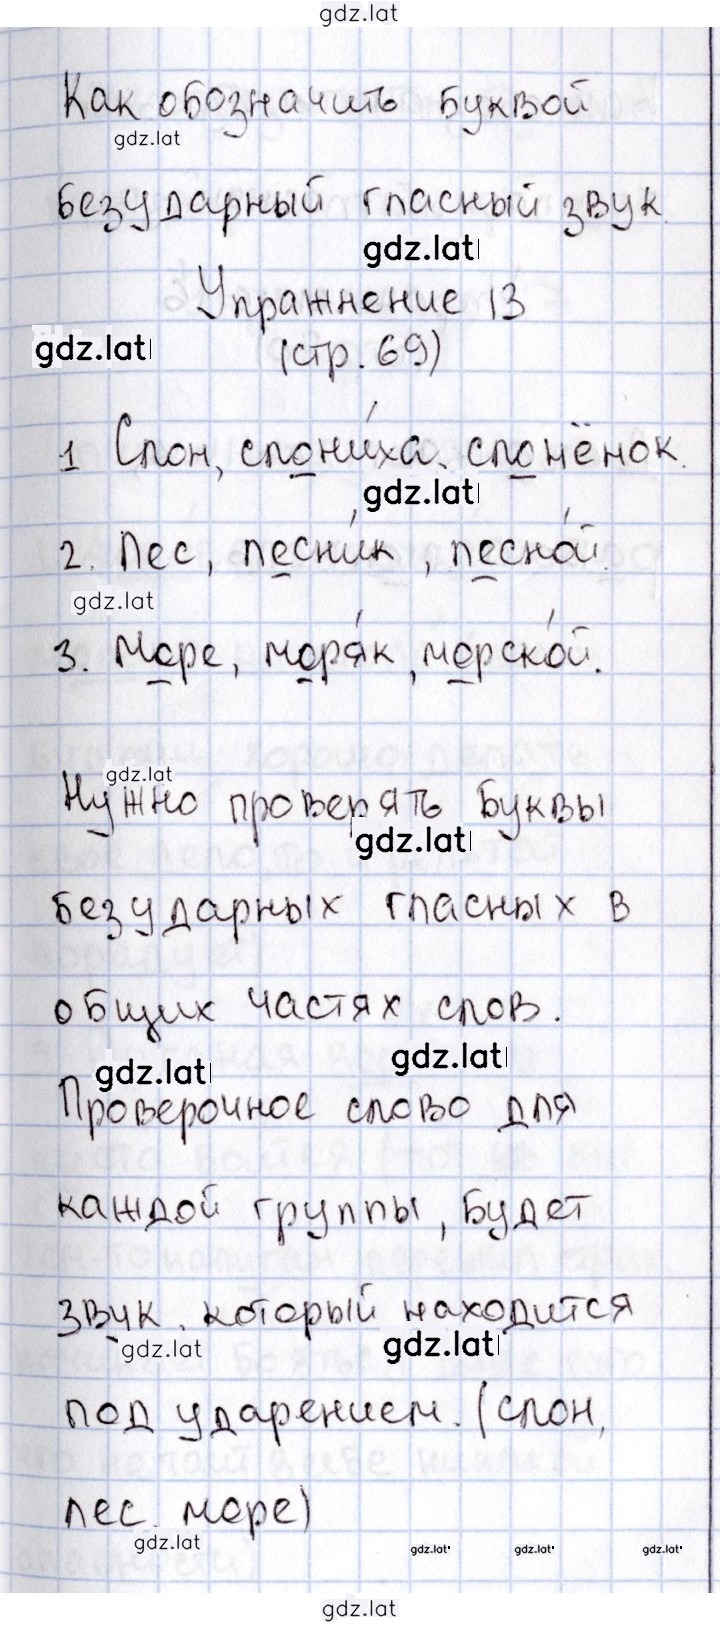 gdz.lat
Как обозначить буквой
gdz.lat
безударный гласный звук.
gdz.lat
Упражнение 13
gdz.lat
(стр. 69)
1 Слон, слони́ха, слонёнок.
gdz.lat
2. Лес, лесни́к, лесно́й.
gdz.lat
3. Море, моря́к, морско́й.
gdz.lat
Нужно проверять буквы
gdz.lat
безударных гласных в
общих частях слов.
gdz.lat
gdz.lat
Проверочное слово для
каждой группы, будет
звук, который находится
gdz.lat
gdz.lat
под ударением. (слон,
лес. море)
gdz.lat
gdz.lat gdz.lat gdz.lat
gdz.lat